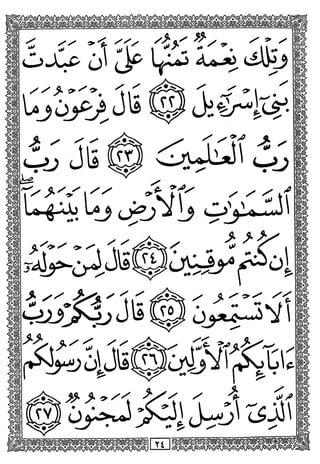 وَتِلْكَ نِعْمَةٌ تَمُنُّهَا عَلَيَّ أَنْ عَبَّدتَّ
بَنِيٓ إِسْرَٰٓءِيلَ ٢٢ قَالَ فِرْعَوْنُ وَمَا
رَبُّ ٱلْعَٰلَمِينَ ٢٣ قَالَ رَبُّ
ٱلسَّمَٰوَٰتِ وَٱلْأَرْضِ وَمَا بَيْنَهُمَآۖ
إِن كُنتُم مُّوقِنِينَ ٢٤ قَالَ لِمَنْ حَوْلَهُۥٓ
أَلَا تَسْتَمِعُونَ ٢٥ قَالَ رَبُّكُمْ وَرَبُّ
ءَابَآئِكُمُ ٱلْأَوَّلِينَ ٢٦ قَالَ إِنَّ رَسُولَكُمُ
ٱلَّذِيٓ أُرْسِلَ إِلَيْكُمْ لَمَجْنُونٌ ٢٧
٢٤